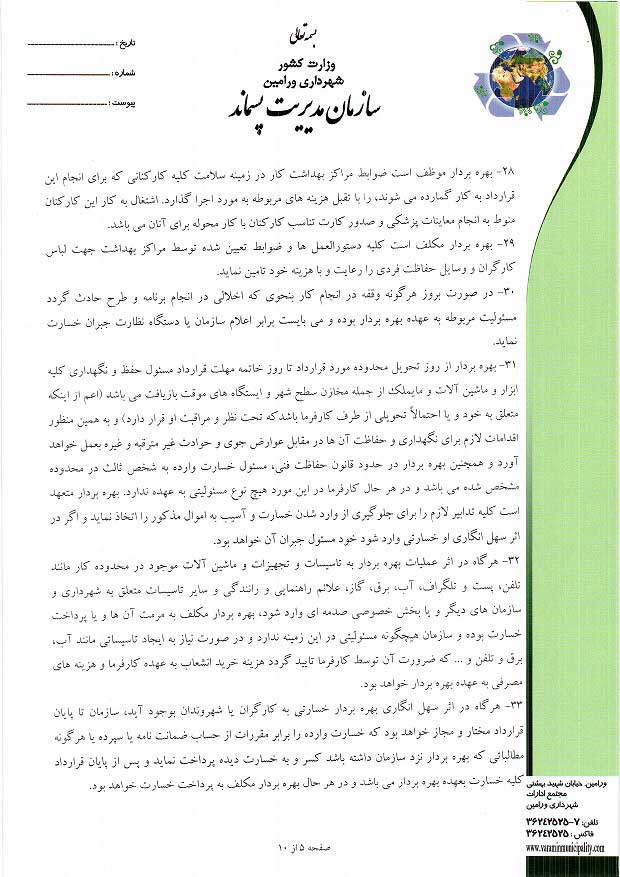 بسمه تعالی
وزارت کشور
شهرداری ورامین
سازمان مدیریت پسماند
تاریخ :
شماره :
پیوست :
۲۸- بهره بردار موظف است ضوابط مراکز بهداشت کار در زمینه سلامت کلیه کارکنانی که برای انجام این
قرارداد به کار گمارده می شوند، را با تقبل هزینه های مربوطه به مورد اجرا گذارد. اشتغال به کار این کارکنان
منوط به انجام معاینات پزشکی و صدور کارت تناسب کارکنان با کار محوله برای آنان می باشد.
۲۹- بهره بردار مکلف است کلیه دستورالعمل ها و ضوابط تعیین شده توسط مراکز بهداشت جهت لباس
کارگران و وسایل حفاظت فردی را رعایت و با هزینه خود تامین نماید.
۳۰- در صورت بروز هرگونه وقفه در انجام کار بنحوی که اخلالی در انجام برنامه و طرح حادث گردد
مسئولیت مربوطه به عهده بهره بردار بوده و می بایست برابر اعلام سازمان یا دستگاه نظارت جبران خسارت
نماید.
۳۱- بهره بردار از روز تحویل محدوده مورد قرارداد تا روز خاتمه مهلت قرارداد مسئول حفظ و نگهداری کلیه
ابزار و ماشین آلات و مایملک از جمله مخازن سطح شهر و ایستگاه های موقت بازیافت می باشد (اعم از اینکه
متعلق به خود و یا احتمالاً تحویلی از طرف کارفرما باشدکه تحت نظر و مراقبت او قرار دارد) و به همین منظور
اقدامات لازم برای نگهداری و حفاظت آن ها در مقابل عوارض جوی و حوادث غیر مترقبه و غیره بعمل خواهد
آورد و همچنین بهره بردار در حدود قانون حفاظت فنی، مسئول خسارت وارده به شخص ثالث در محدوده
مشخص شده می باشد و در هر حال کارفرما در این مورد هیچ نوع مسئولیتی به عهده ندارد. بهره بردار متعهد
است کلیه تدابیر لازم را برای جلوگیری از وارد شدن خسارت و آسیب به اموال مذکور را اتخاذ نماید و اگر در
اثر سهل انگاری او خسارتی وارد شود خود مسئول جبران آن خواهد بود.
۳۲- هرگاه در اثر عملیات بهره بردار به تاسیسات و تجهیزات و ماشین آلات موجود در محدوده کار مانند
تلفن، پست و تلگراف، آب، برق، گاز، علائم راهنمایی و رانندگی و سایر تاسیسات متعلق به شهرداری و
سازمان های دیگر و یا بخش خصوصی صدمه ای وارد شود، بهره بردار مکلف به مرمت آن ها و یا پرداخت
خسارت بوده و سازمان هیچگونه مسئولیتی در این زمینه ندارد و در صورت نیاز به ایجاد تاسیساتی مانند آب،
برق و تلفن و ... که ضرورت آن توسط کارفرما تایید گردد هزینه خرید انشعاب به عهده کارفرما و هزینه های
مصرفی به عهده بهره بردار خواهد بود.
۳۳- هرگاه در اثر سهل انگاری بهره بردار خسارتی به کارگران یا شهروندان بوجود آید، سازمان تا پایان
قرارداد مختار و مجاز خواهد بود که خسارت وارده را برابر مقررات از حساب ضمانت نامه یا سپرده یا هرگونه
مطالباتی که بهره بردار نزد سازمان داشته باشد کسر و به خسارت دیده پرداخت نماید و پس از پایان قرارداد
کلیه خسارت بعهده بهره بردار می باشد و در هر حال بهره بردار مکلف به پرداخت خسارت خواهد بود.
ورامین. خیابان شهید بهشتی
مجتمع ادارات
شهرداری ورامین
تلفن: ۷-۳۶۲۴۲۵۲۵
فاکس : ۳۶۲۴۲۵۲۵
www.varaminmunicipality.com
صفحه ۵ از ۱۰